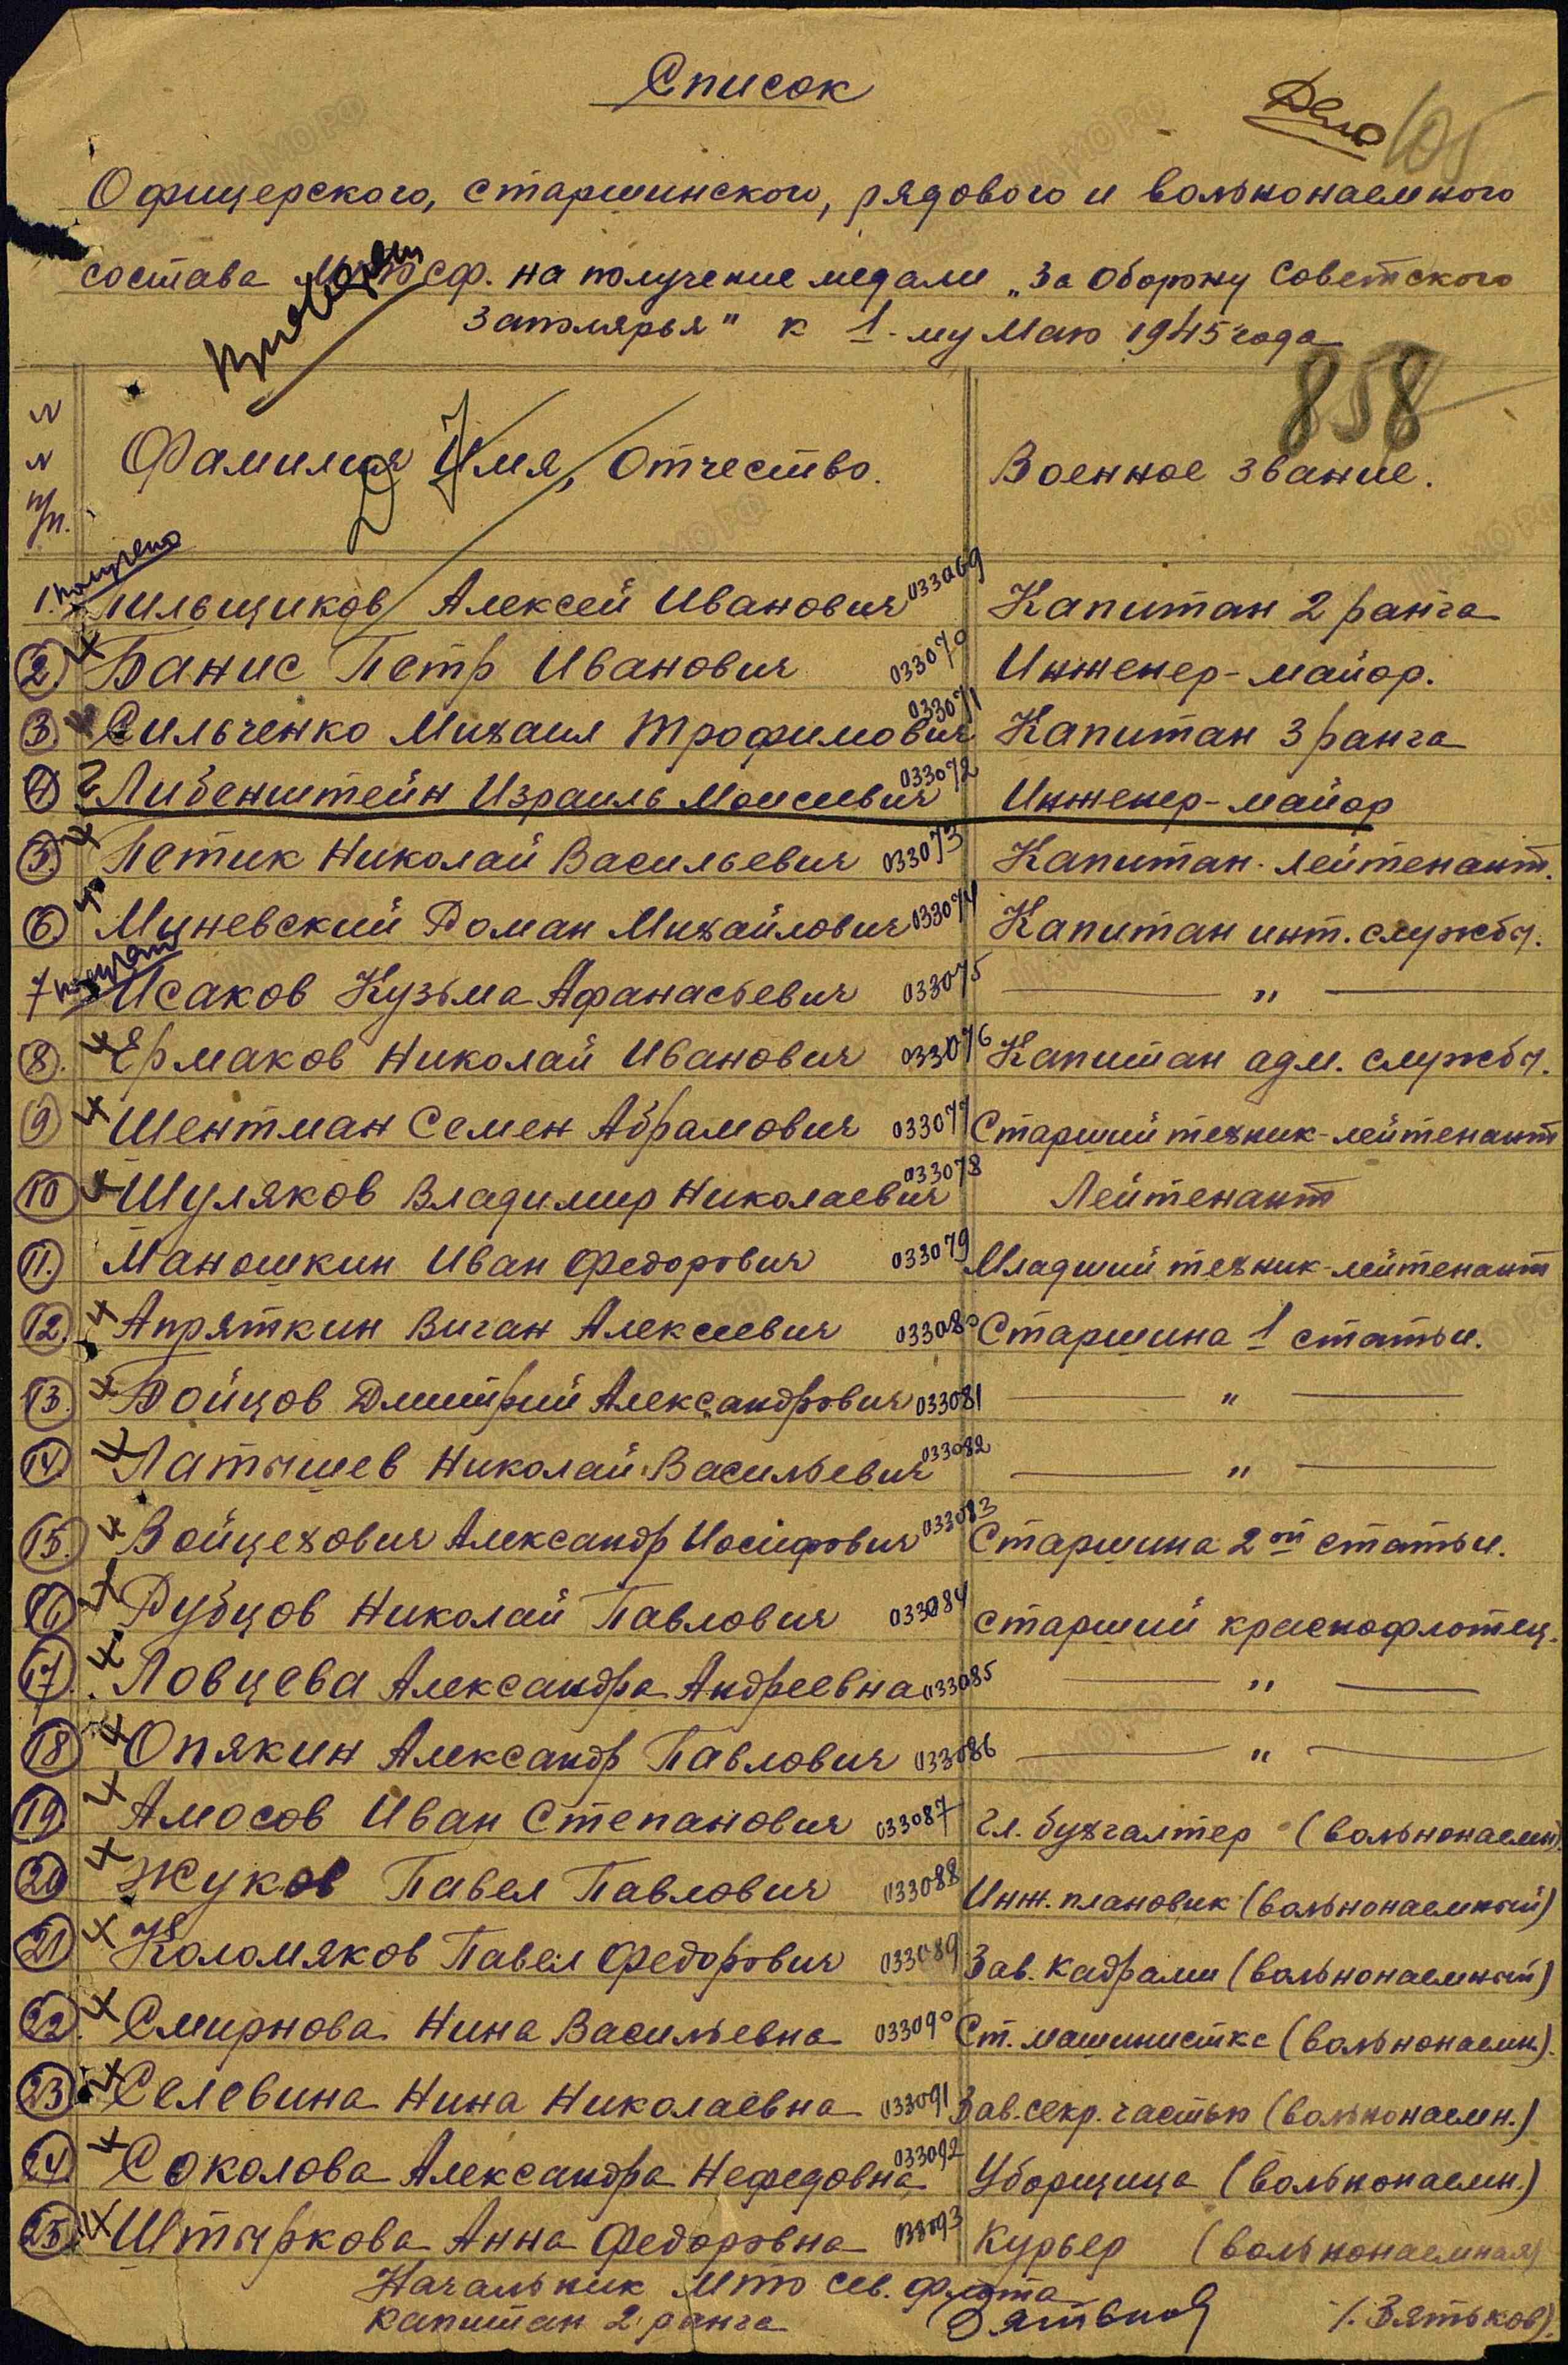 Список
Дело 105
Офицерского, старшинского, рядового и вольнонаемного
состава МТО СФ. на получение медали „За Оборону Советского
Заполярья" к 1-му Маю 1945 года
858
N N п/п. Фамилия Имя, Отчество. Военное звание.
1. Пильщиков Алексей Иванович 033069 Капитан 2 ранга
2. Банис Петр Иванович 033070 Инженер-майор.
3. Сильченко Михаил Трофимович 033071 Капитан 3 ранга
4 Либенштейн Израиль Моисеевич 033072 Инженер-майор
5. Петик Николай Васильевич 033073 Капитан-лейтенант.
6. Миневский Роман Михайлович 033074 Капитан инт. службы.
7 Исаков Кузьма Афанасьевич 033075 — " —
8. Ермаков Николай Иванович 033076 Капитан адм. службы.
9 Шентман Семен Абрамович 033077 Старший техник-лейтенант
10 Шуляков Владимир Николаевич 033078 Лейтенант
11. Маношкин Иван Федорович 033079 Младший техник-лейтенант
12. Апряткин Виган Алексеевич 033080 Старшина 1 статьи.
13. Бойцов Дмитрий Александрович 033081 — " —
14. Латышев Николай Васильевич 033082 — " —
15. Войцехович Александр Иосифович 033083 Старшина 2ой статьи.
16. Рубцов Николай Павлович 033084 Старший краснофлотец.
17. Ловцева Александра Андреевна 033085 — " —
18 Опякин Александр Павлович 033086 — " —
19. Амосов Иван Степанович 033087 Гл. бухгалтер (вольнонаемн)
20 Жуков Павел Павлович 033088 Инж. плановик (вольнонаемный)
21 Коломяков Павел Федорович 033089 Зав. кадрами (вольнонаемный)
22. Смирнова Нина Васильевна 033090 Ст. машинистка (вольнонаемн.).
23. Селевина Нина Николаевна 033091 Зав. секр. частью (вольнонаемн.)
24. Соколова Александра Нефедовна 033092 Уборщица (вольнонаемн.)
25. Штыркова Анна Федоровна 033093 Курьер (вольнонаемная)
Начальник МТО Сев. флота
капитан 2 ранга (Зятьков).